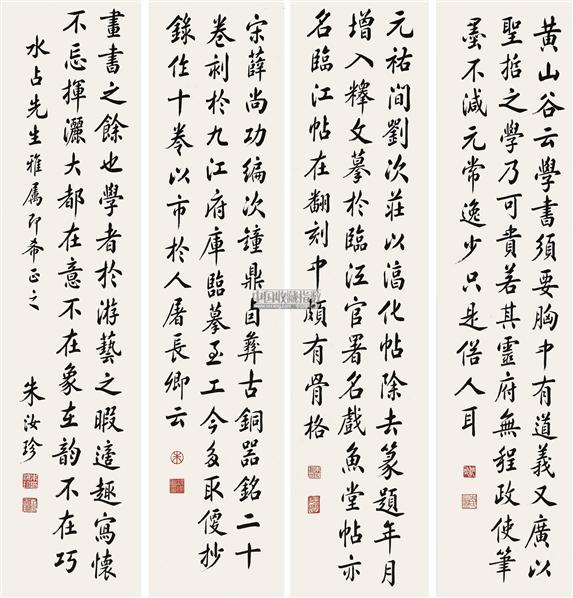 黄山谷云學書須要胸中有道義又廣以
聖哲之學乃可貴若其靈府無程政使筆
墨不減元常逸少只是俗人耳
元祐間劉次莊以滈化帖除去篆題年月
增入釋文摹於臨江官署名戲魚堂帖亦
名臨江帖在翻刻中頗有骨格
宋薛尚功編次鐘鼎卣彝古銅器銘二十
卷刻於九江府庫臨摹至工今多取僾抄
錄作十卷以市於人屠長卿云
畫書之餘也學者於游藝之暇適趣寫懷
不忘揮灑大都在意不在象在韵不在巧
水占先生雅屬即希正之
朱汝珍
中国收藏指数